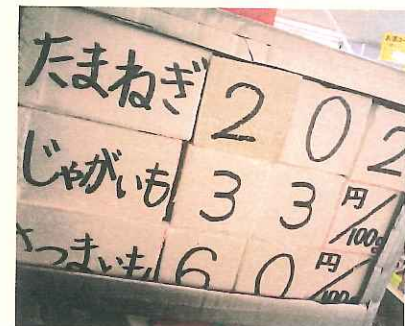 たまねぎ 202
じゃがいも 33円/100g
さつまいも 60円/100g